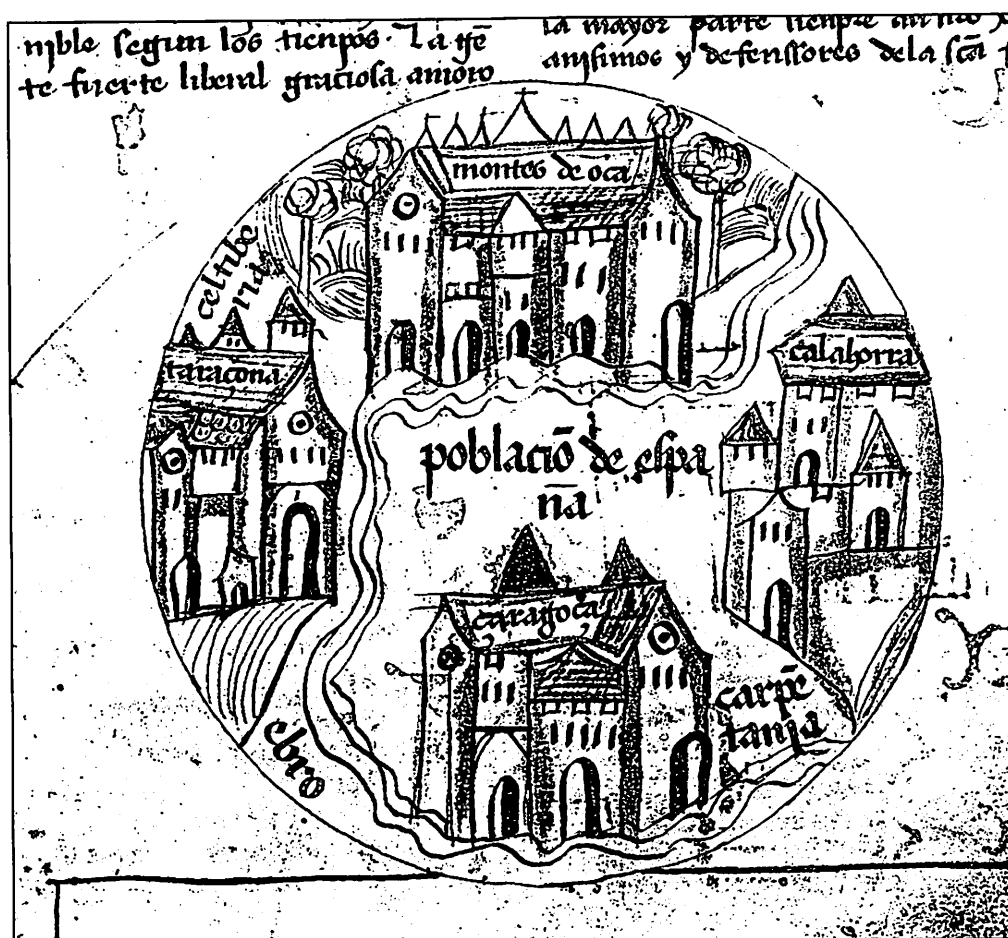 nible segun los tienpos. La gē
te fuerte liberal graciosa amoro
la mayor parte sienpre
anisimos y defenssores dela scā
montes de oca
celtibe
ria
taraçona
calahorra
poblaciō de espa
ña
çaragoça
carpē
tanja
ebro